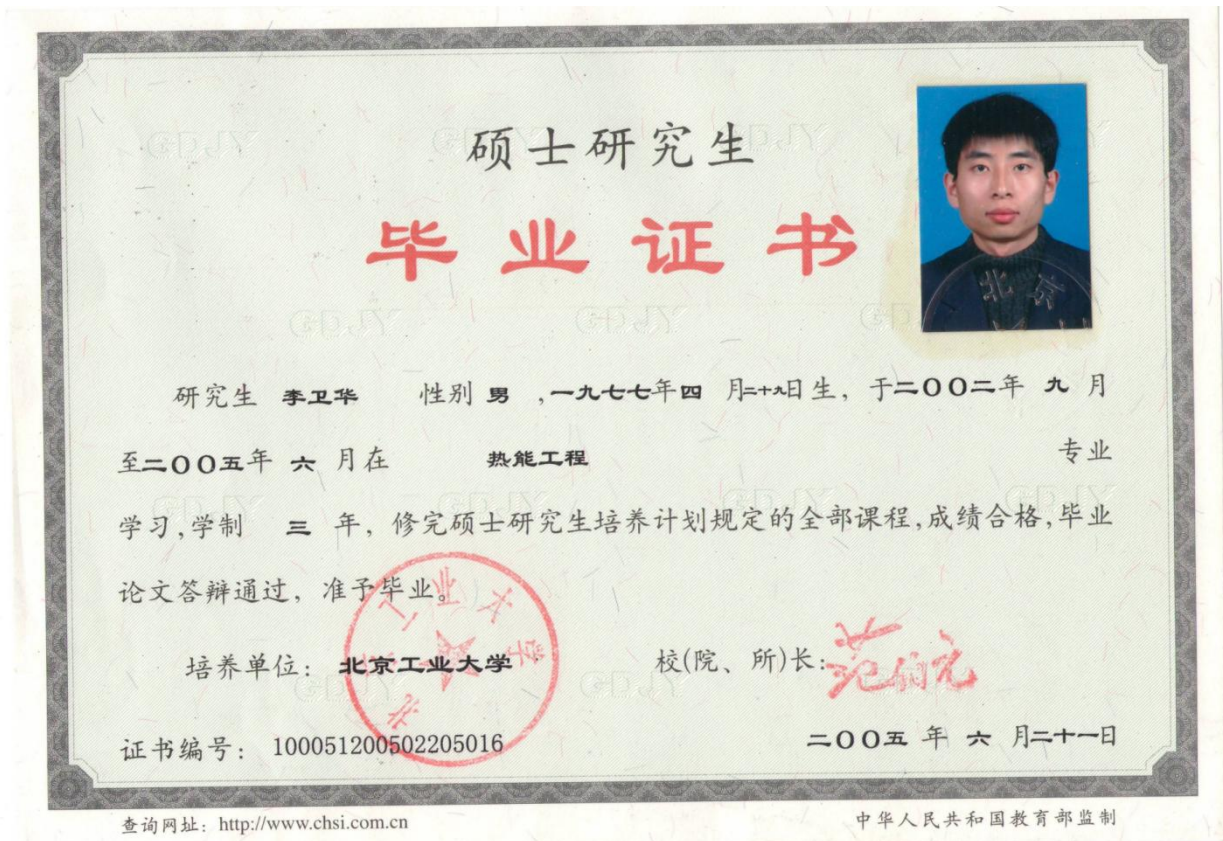 硕士研究生
毕业证书
研究生 李卫华 性别 男 ,一九七七年四 月二十九日生, 于二〇〇二年 九 月
至二〇〇五年 六 月在 热能工程 专业
学习,学制 三 年, 修完硕士研究生培养计划规定的全部课程,成绩合格,毕业
论文答辩通过, 准予毕业。
培养单位: 北京工业大学 校(院、所)长: 范伯元
证书编号: 100051200502205016 二〇〇五 年 六 月二十一日
查询网址: http://www.chsi.com.cn 中华人民共和国教育部监制
北京工业大学
北京
GDJY